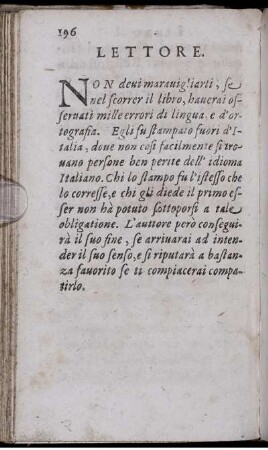 196
LETTORE.
NON devi maravigliarti, se
nel scorrer il libro, haverai os-
servati mille errori di lingua, e d'or-
tografia. Egli fu stampato fuori d'I-
talia, dove non così facilmente si tro-
vano persone ben perite dell' idioma
Italiano. Chi lo stampo fu l'istesso che
lo corresse, e chi gli diede il primo es-
ser non hà potuto sottoporsi a tale
obligatione. L'auttore però consegui-
rà il suo fine, se arrivarai ad inten-
der il suo senso, e si riputarà a bastan-
za favorito se ti compiacerai compa-
tirlo.